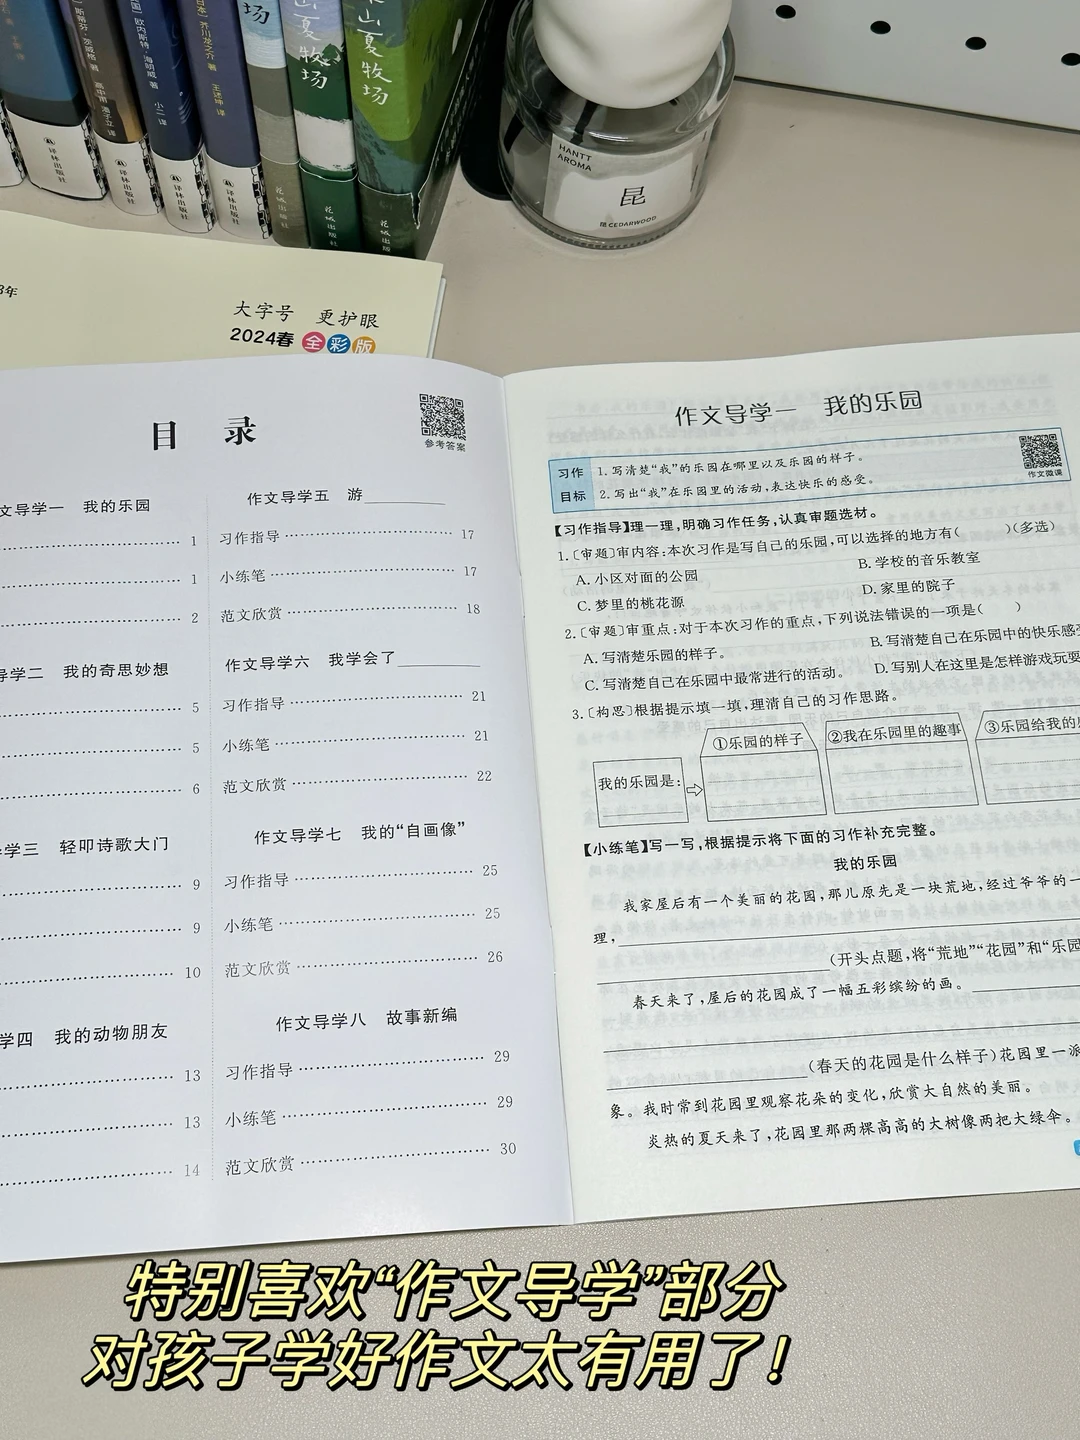 斯蒂芬·茨威格 著
高中甫 潘子立 译
欧内斯特·海明威 著
小二 译
芥川龙之介 著
译林出版社
译林出版社
译林出版社
译林出版社
场
山夏牧场
山夏牧场
花城出版社
花城出版社
花城出版社
HANTT
AROMA
昆
昆 CEDARWOOD
3年
大字号 更护眼
2024春 全彩版
目 录
参考答案
文导学一 我的乐园
1
1
2
导学二 我的奇思妙想
5
5
6
学三 轻叩诗歌大门
9
9
10
学四 我的动物朋友
13
13
14
作文导学五 游________
习作指导 17
小练笔 17
范文欣赏 18
作文导学六 我学会了________
习作指导 21
小练笔 21
范文欣赏 22
作文导学七 我的“自画像”
习作指导 25
小练笔 25
范文欣赏 26
作文导学八 故事新编
习作指导 29
小练笔 29
范文欣赏 30
作文导学一 我的乐园
习作
目标
1.写清楚“我”的乐园在哪里以及乐园的样子。
2.写出“我”在乐园里的活动,表达快乐的感受。
作文微课
【习作指导】理一理,明确习作任务,认真审题选材。
1.〔审题〕审内容:本次习作是写自己的乐园,可以选择的地方有( )(多选)
A.小区对面的公园 B.学校的音乐教室
C.梦里的桃花源 D.家里的院子
2.〔审题〕审重点:对于本次习作的重点,下列说法错误的一项是( )
A.写清楚乐园的样子。 B.写清楚自己在乐园中的快乐感受
C.写清楚自己在乐园中最常进行的活动。 D.写别人在这里是怎样游戏玩耍
3.〔构思〕根据提示填一填,理清自己的习作思路。
我的乐园是:
①乐园的样子 ②我在乐园里的趣事 ③乐园给我的
【小练笔】写一写,根据提示将下面的习作补充完整。
我的乐园
我家屋后有一个美丽的花园,那儿原先是一块荒地,经过爷爷的一
理,
(开头点题,将“荒地”“花园”和“乐园
春天来了,屋后的花园成了一幅五彩缤纷的画。
(春天的花园是什么样子)花园里一派
象。我时常到花园里观察花朵的变化,欣赏大自然的美丽。
炎热的夏天来了,花园里那两棵高高的大树像两把大绿伞。
特别喜欢“作文导学”部分
对孩子学好作文太有用了!